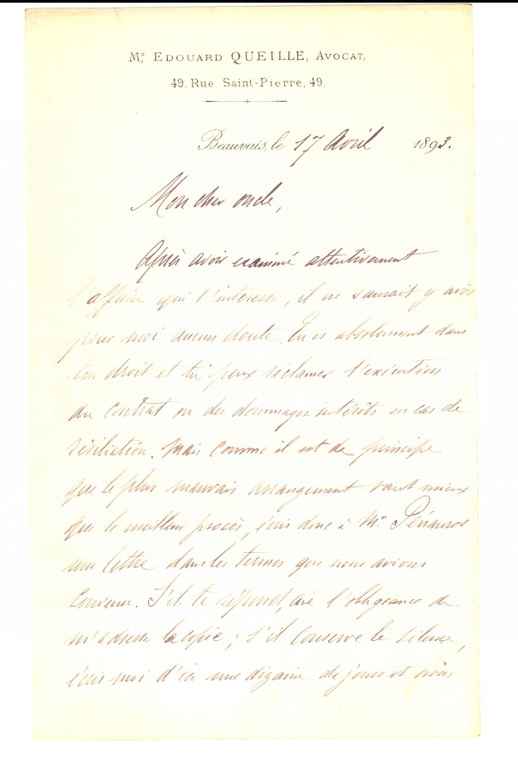 Me EDOUARD QUEILLE, AVOCAT,
49, Rue Saint-Pierre, 49.
Beauvais, le 17 Avril 1893.
Mon cher oncle,
Après avoir examiné attentivement
l'affaire qui t'intéresse, il ne saurait y avoir
pour moi aucun doute. Tu es absolument dans
ton droit et tu peux réclamer l'exécution
du contrat ou des dommages intérêts en cas de
résiliation. Mais comme il est de principe
que le plus mauvais arrangement vaut mieux
que le meilleur procès, écris donc à Mr
une lettre dans les termes que nous avions
convenu. S'il te répond, aie l'obligeance de
m'adresser la copie ; s'il conserve le silence,
écris moi d'ici une dizaine de jours et nous